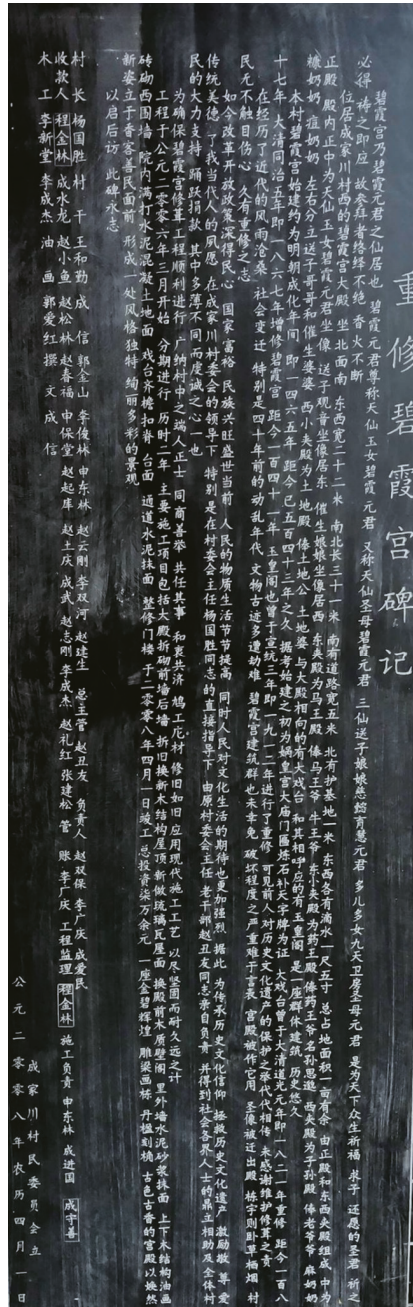 重修碧霞宫碑记
碧霞宫乃碧霞元君之仙居也 碧霞元君尊称天仙玉女碧霞元君 又称天仙圣母碧霞元君 三仙送子娘娘慈懿育慧元君 多儿多女九天卫房圣母元君 是为天下众生祈福 求子 还愿的圣君 祈之
必得 祷之即应 故参拜者络绎不绝 香火不断
位居成家川村西的碧霞宫大殿 坐北面南 东西宽二十二米 南北长三十一米 南有道路宽五米 北有护基地一米 东西各有滴水一尺五寸 总占地面积一亩有余 由正殿和东西夹殿组成 中为
正殿 殿内正中为天仙玉女碧霞元君坐像 送子观音坐像居东 催生娘娘坐像居西 东夹殿为马王殿 俸马王爷 牛王爷 东小夹殿为药王殿 俸药王爷名孙思邈 西夹殿为子孙殿 俸老爷爷 麻奶奶
糠奶奶 痘奶奶 左右分立送子哥哥和催生婆婆 西小夹殿为土地殿 俸土地公 土地婆 与大殿相向的有大戏台 和其相呼应的有玉皇阁 是一座群体建筑 历史悠久
本村碧霞宫始建约为明朝成化年间 即一四六五年 距今已五百四十三年之久 据考始建之初为娲皇宫大庙门匾炼石补天字牌为证 大戏台曾于大清道光元年即一八二一年重修 距今一百八
十七年 大清同治五年即一八六七年增修碧霞宫 距今一百四十一年 玉皇阁也曾于宣统三年即一九一二年进行了重修 可见前人对历史文化遗产的保护之举代代相传 未感谢维护修葺之责
在经历了近代的风雨沧桑 社会变迁 特别是四十年前的动乱年代 文物古迹多遭劫难 碧霞宫建筑群也未幸免 破坏程度之严重难于言表 宫殿被作它用 圣像被迁出殿 栋宇则卧草栖烟 村
民无不触目伤心 久有重修之志
如今改革开放政策深得民心 国家富裕 民族兴旺盛世当前 人民的物质生活节节提高 同时人民对文化生活的期待也更加强烈 据此 为传承历史文化信仰 拯救历史文化遗产 激励孝 等爱
传统美德 了我当代人的夙愿 在成家川村委会的领导下 特别是在村委会主任杨国胜同志的直接指导下 由原村委会主任 老干部赵丑友同志亲自负责 并得到社会各界人士的鼎立相助及全体村
民的大力支持 踊跃捐款 其中多薄不同而虔诚之心一也
为确保碧霞宫修葺工程顺利进行 广纳村中之端人正士 同商善举 共任其事 和衷共济 鸠工庀材 修旧如旧 应用现代施工工艺 以尽坚固而耐久远之计
工程于公元二零零六年三月开始 分期进行 历时二年 主要施工项目包括大殿拆砌前墙后墙 拆旧换新木结构屋顶 新做琉璃瓦屋面 换殿前木质壁阁 里外墙水泥砂浆抹面 上下木结构油画
砖砌西围墙 院内满打水泥混凝土地面 戏台齐檐扣脊 台面 通道水泥抹面 整修门楼 于二零零八年四月一日竣工 总投资柒万余元 一座金碧辉煌 雕梁画栋 丹楹刻桷 古色古香的宫殿以焕然
新姿立于香客善民面前 形成一处风格独特 绚丽多彩的景观
以启后访 此碑永志
村长 杨国胜 村干 王和勤 成信 郭金山 李俊林 申东林 赵云刚 李双河 赵建生 总主管 赵丑友 负责人 赵双保 李广庆 成爱民
收款人 程金林 成水龙 赵小鱼 赵松林 赵春福 申保堂 赵起库 赵土庆 成武 赵志刚 李成杰 赵礼红 张建松 管账 李广庆 工程监理 程金林 施工负责 申东林 成进国 成宇善
木工 李新堂 李成杰 油画 郭爱红 撰文 成信
成家川村民委员会立
公元二零零八年农历四月一日